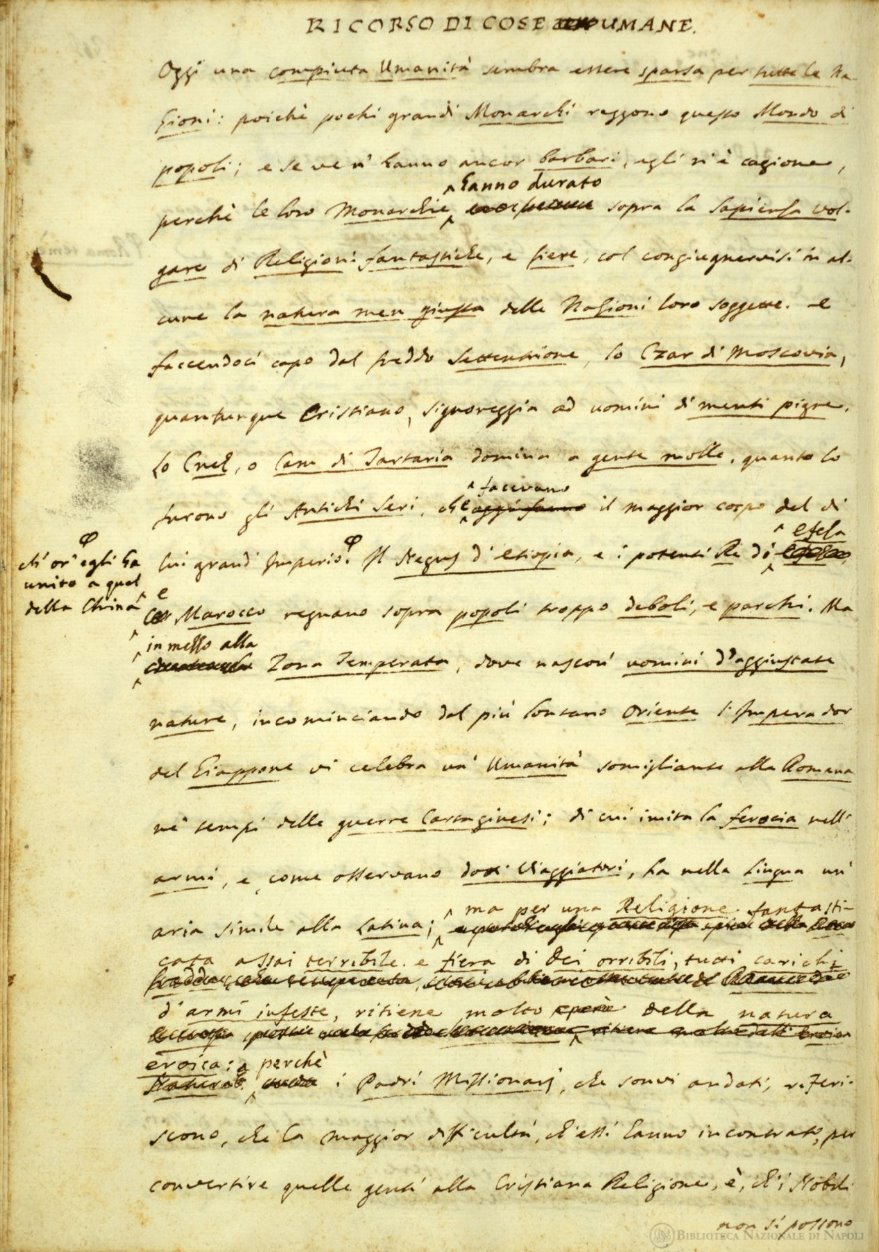 RICORSO DI COSE UMANE.
Oggi una compiuta Umanità sembra essere sparsa per tutte le Na-
zioni: poichè pochi grandi Monarchi reggono questo Mondo di
popoli; e se ve n' hanno ancor barbari, egli n'è cagione,
hanno durato
perchè le loro Monarchie sopra la Sapienza vol-
gare di Religioni fantastiche, e fiere, col congiugnervisi in al-
cune la natura men giusta delle Nazioni loro soggette. e
faccendoci capo dal freddo Settentrione, lo Czar di Moscovia,
quantunque Cristiano, signoreggia ad uomini di menti pigre.
Lo Cnez, o Cam di Tartaria domina a gente molle, quanto lo
facevano
furono gli Antichi Seri, che il maggior corpo del di
efela
lui grand' Imperio. Il Negus d'etiopia, e i potenti Re di
ch' or' egli ha
unito a quel
della China
e
Marocco regnano sopra popoli troppo deboli, e parchi. Ma
in mezzo alla
Zona Temperata, dove nascon' uomini d'aggiustate
nature, incominciando dal più lontano Oriente l'Imperador
del Giappone vi celebra un' Umanità somigliante alla Romana
ne' tempi delle guerre Cartaginesi; di cui imita la ferocia nell'
armi, e, come osservano dotti Viaggiatori, ha nella Lingua un'
ma per una Religione fantasti-
aria simile alla Latina;
cata assai terribile e fiera di Dei orribili, tutti carichi
d'armi infeste, ritiene molto della natura
eroica: perchè
i Padri Missionarj, che sonvi andati, riferi-
scono, che la maggior difficultà, ch'essi hanno incontrato, per
convertire quelle genti alla Cristiana Religione, è, ch'i Nobili
non si possono
BIBLIOTECA NAZIONALE DI NAPOLI